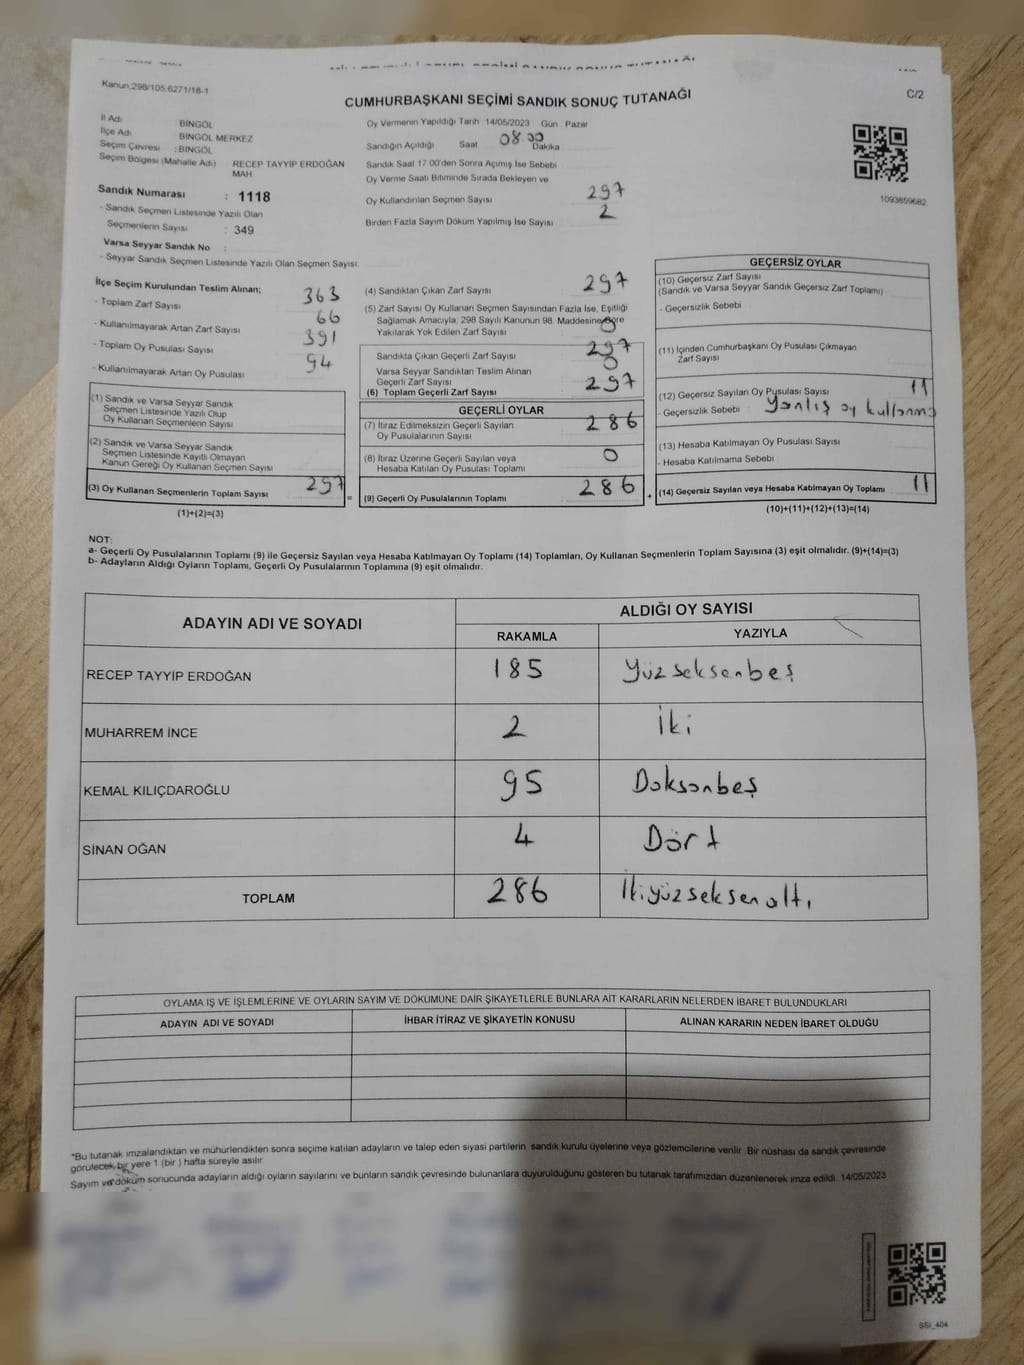 Kanun,298/105,6271/18-1
CUMHURBAŞKANI SEÇİMİ SANDIK SONUÇ TUTANAĞI
C/2
İl Adı : BİNGÖL
İlçe Adı : BİNGÖL MERKEZ
Seçim Çevresi : BİNGÖL
Seçim Bölgesi (Mahalle Adı) : RECEP TAYYİP ERDOĞAN MAH
Sandık Numarası : 1118
- Sandık Seçmen Listesinde Yazılı Olan
Seçmenlerin Sayısı : 349
Varsa Seyyar Sandık No :
- Seyyar Sandık Seçmen Listesinde Yazılı Olan Seçmen Sayısı:
Oy Vermenin Yapıldığı Tarih 14/05/2023 Gün Pazar
Sandığın Açıldığı Saat 08 00 Dakika
Sandık Saat 17:00'den Sonra Açımış İse Sebebi
Oy Verme Saati Bitiminde Sırada Bekleyen ve
Oy Kullandırılan Seçmen Sayısı 297
Birden Fazla Sayım Döküm Yapılmış İse Sayısı 2
1093859682
İlçe Seçim Kurulundan Teslim Alınan;
- Toplam Zarf Sayısı 363
- Kullanılmayarak Artan Zarf Sayısı 66
- Toplam Oy Pusulası Sayısı 391
- Kullanılmayarak Artan Oy Pusulası 94
(1) Sandık ve Varsa Seyyar Sandık
Seçmen Listesinde Yazılı Olup
Oy Kullanan Seçmenlerin Sayısı
(2) Sandık ve Varsa Seyyar Sandık
Seçmen Listesinde Kayıtlı Olmayan
Kanun Gereği Oy Kullanan Seçmen Sayısı
(3) Oy Kullanan Seçmenlerin Toplam Sayısı 297
(1)+(2)=(3)
(4) Sandıktan Çıkan Zarf Sayısı 297
(5) Zarf Sayısı Oy Kullanan Seçmen Sayısından Fazla İse, Eşitliği
Sağlamak Amacıyla; 298 Sayılı Kanunun 98. Maddesine Göre
Yakılarak Yok Edilen Zarf Sayısı 0
Sandıkta Çıkan Geçerli Zarf Sayısı 297
Varsa Seyyar Sandıktan Teslim Alınan
Geçerli Zarf Sayısı 0
(6) Toplam Geçerli Zarf Sayısı 297
GEÇERLİ OYLAR
(7) İtiraz Edilmeksizin Geçerli Sayılan
Oy Pusulalarının Sayısı 286
(8) İtiraz Üzerine Geçerli Sayılan veya
Hesaba Katılan Oy Pusulası Toplamı 0
= (9) Geçerli Oy Pusulalarının Toplamı 286
GEÇERSİZ OYLAR
(10) Geçersiz Zarf Sayısı
(Sandık ve Varsa Seyyar Sandık Geçersiz Zarf Toplamı)
- Geçersizlik Sebebi
(11) İçinden Cumhurbaşkanı Oy Pusulası Çıkmayan
Zarf Sayısı
(12) Geçersiz Sayılan Oy Pusulası Sayısı 11
- Geçersizlik Sebebi Yanlış oy kullanma
(13) Hesaba Katılmayan Oy Pusulası Sayısı
- Hesaba Katılmama Sebebi
+ (14) Geçersiz Sayılan veya Hesaba Katılmayan Oy Toplamı 11
(10)+(11)+(12)+(13)=(14)
NOT:
a- Geçerli Oy Pusulalarının Toplamı (9) ile Geçersiz Sayılan veya Hesaba Katılmayan Oy Toplamı (14) Toplamları, Oy Kullanan Seçmenlerin Toplam Sayısına (3) eşit olmalıdır. (9)+(14)=(3)
b- Adayların Aldığı Oyların Toplamı, Geçerli Oy Pusulalarının Toplamına (9) eşit olmalıdır.
ADAYIN ADI VE SOYADI
ALDIĞI OY SAYISI
RAKAMLA YAZIYLA
RECEP TAYYİP ERDOĞAN 185 Yüzseksenbeş
MUHARREM İNCE 2 İki
KEMAL KILIÇDAROĞLU 95 Doksanbeş
SİNAN OĞAN 4 Dört
TOPLAM 286 İkiyüzseksenaltı
OYLAMA İŞ VE İŞLEMLERİNE VE OYLARIN SAYIM VE DÖKÜMÜNE DAİR ŞİKAYETLERLE BUNLARA AİT KARARLARIN NELERDEN İBARET BULUNDUKLARI
ADAYIN ADI VE SOYADI İHBAR İTİRAZ VE ŞİKAYETİN KONUSU ALINAN KARARIN NEDEN İBARET OLDUĞU
*Bu tutanak imzalandıktan ve mühürlendikten sonra seçime katılan adayların ve talep eden siyasi partilerin sandık kurulu üyelerine veya gözlemcilerine verilir. Bir nüshası da sandık çevresinde
görülecek bir yere 1 (bir ) hafta süreyle asılır.
Sayım ve döküm sonucunda adayların aldığı oyların sayılarını ve bunların sandık çevresinde bulunanlara duyurulduğunu gösteren bu tutanak tarafımızdan düzenlenerek imza edildi. 14/05/2023
SSI_404